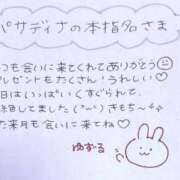 パサディナの本指名さま
つも会いに来てくれてありがとう☺
プレゼントもたくさん!うれしい♡
日はいっぱいくすぐられて、
してました(>ᯅ<) きもち〜
た来月も会いに来てね♡
ゆずる